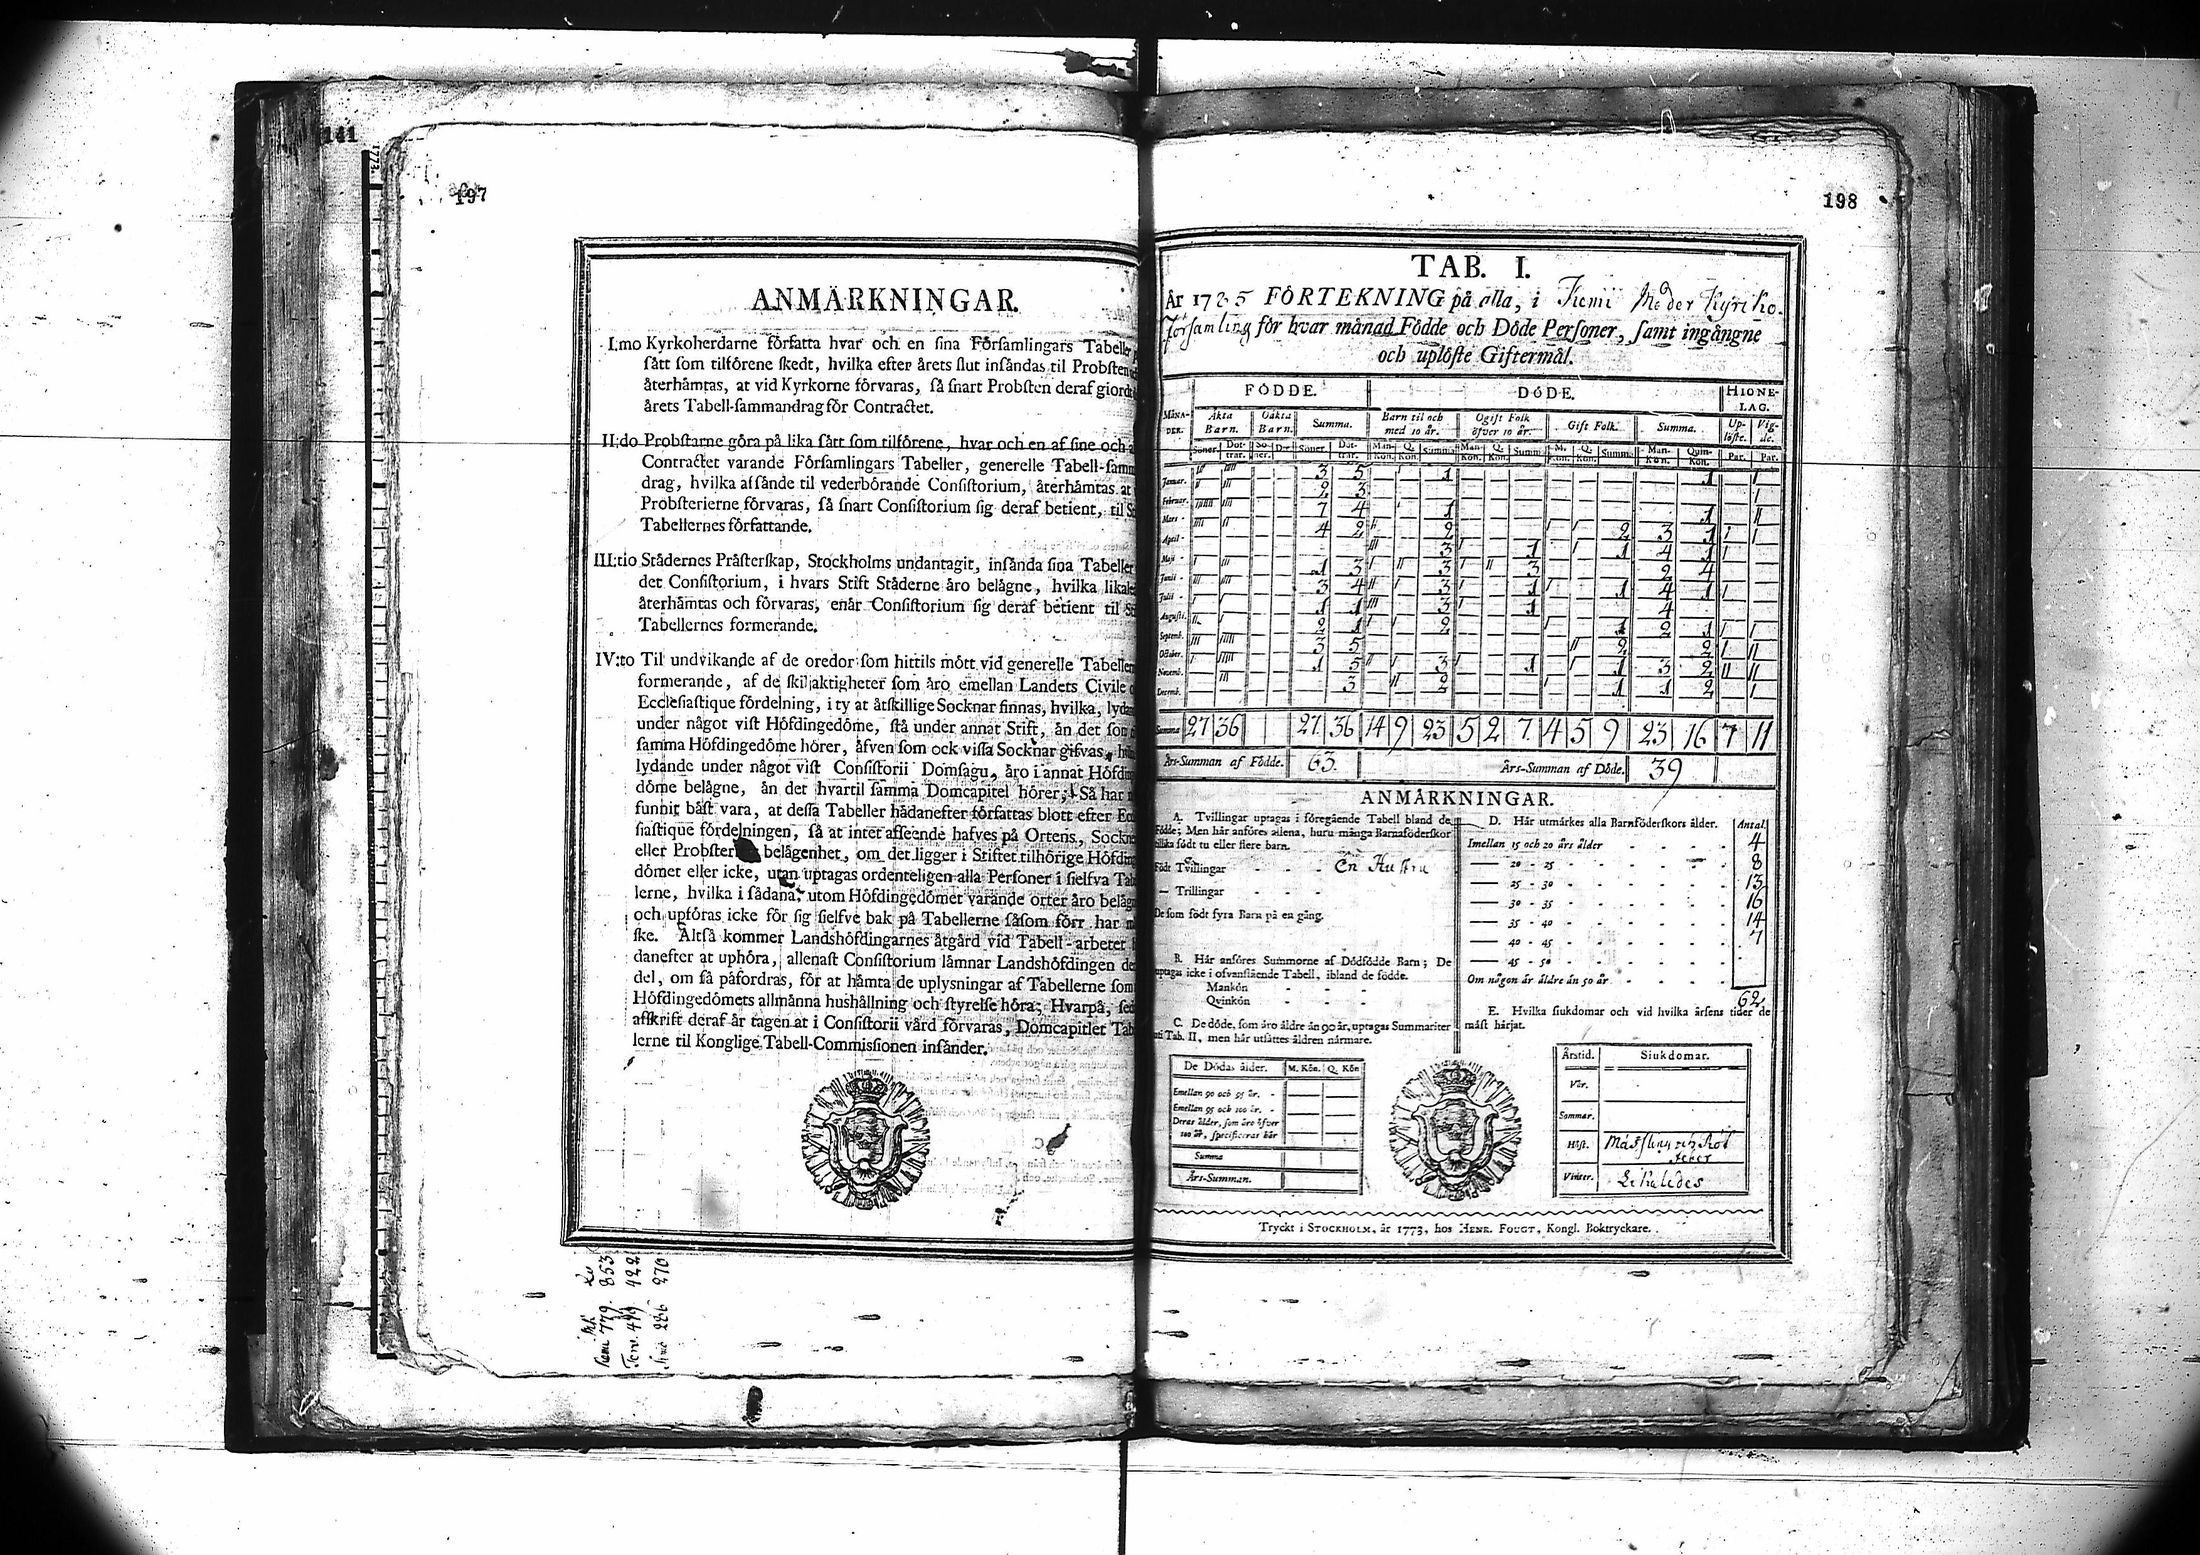 141
197
ANMÄRKNINGAR.
I:mo Kyrkoherdarne författa hvar och en sina Församlingars Tabeller
sätt som tilförene skedt, hvilka efter årets slut insändas til Probsten
återhämtas, at vid Kyrkorne förvaras, så snart Probsten deraf giordt
årets Tabell-sammandrag för Contractet.
II:do Probstarne göra på lika sätt som tilförene, hvar och en af sine och
Contractet varande Församlingars Tabeller, generelle Tabell-samman
drag, hvilka afsände til vederbörande Consistorium, återhämtas at
Probsterierne förvaras, så snart Consistorium sig deraf betient, til
Tabellernes författande.
III:tio Städernes Prästerskap, Stockholms undantagit, insända sina Tabeller
det Consistorium, i hvars Stift Städerne äro belägne, hvilka likaledes
återhämtas och förvaras, enär Consistorium sig deraf betient til
Tabellernes formerande.
IV:to Til undvikande af de oredor som hittils mött vid generelle Tabellernes
formerande, af de skiljaktigheter som äro emellan Landets Civile
Ecclesiastique fördelning, i ty at åtskillige Socknar finnas, hvilka, lydande
under något vist Höfdingedöme, stå under annat Stift, än det som
samma Höfdingedöme hörer, äfven som ock vissa Socknar gifvas,
lydande under något vist Consistorii Domsagu, äro i annat Höfdinge
döme belägne, än det hvartil samma Domcapitel hörer; Så har
funnit bäst vara, at dessa Tabeller hädanefter författas blott efter
siastique fördelningen, så at intet afseende hafves på Ortens, Socknens
eller Probsteriets belägenhet, om det ligger i Stiftet tilhörige Höfdinge
dömet eller icke, utan uptagas ordenteligen alla Personer i sielfva
lerne, hvilka i sådana, utom Höfdingedömet varande orter äro belägne
och upföras icke för sig sielfve bak på Tabellerne såsom förr har
ske. Altså kommer Landshöfdingarnes åtgärd vid Tabell-arbetet
danefter at uphöra, allenast Consistorium lämnar Landshöfdingen
del, om så påfordras, för at hämta de uplysningar af Tabellerne som
Höfdingedömets allmänna hushållning och styrelse höra; Hvarpå,
afskrift deraf är tagen at i Consistorii vård förvaras, Domcapitlet
lerne til Konglige Tabell-Commissionen insänder.
Mk Qv
Kemi 779. 853
Terv. 419 422
Simo 226 270
198
TAB. I.
År 1785 FÖRTEKNING på alla, i Kemi Moder Kyrko-
församling för hvar månad Födde och Döde Personer, samt ingångne
och uplöste Giftermål.
FÖDDE. DÖDE. HIONE-LAG.
MÅNA-DER. Äkta Barn. Oäkta Barn. Summa. Barn til och med 10 år. Ogift Folk öfver 10 år. Gift Folk. Summa. Up-löste. Vig-de.
Söner. Döt-trar. Sö-ner. Dr. Söner. Döt-trar. Man-Kön. Q. Kön. Summa Man-Kön. Q. Kön. Summ. M. Kön. Q. Kön. Summ. Man-Kön. Quin-Kön. Par. Par.
Januar. 3 5 1 1
Februar. 2 3
Mars 7 4 1 1
April 4 2 2 2 3 1
Maji 3 1 1 4 1
Junii 1 3 3 3 2 4
Julii 3 4 3 1 1 4 1
Augusti 1 1 3 1 4
Septemb. 2 1 2 1 2 1
October. 3 5 2 2
Novemb. 1 5 3 1 1 3 2
Decemb. 3 2 1 1 2
Summa 27 36 27. 36 14 9 23 5 2 7. 4 5 9 23 16 7 11
Års-Summan af Födde. 63. Års-Summan af Döde. 39
ANMÄRKNINGAR.
A. Tvillingar uptagas i föregående Tabell bland de
Födde; Men här anföres allena, huru många Barnaföderskor
tillika födt tu eller flere barn.
Födt Tvillingar - - - En Hustru
— Trillingar - - -
De som födt fyra Barn på en gång.
B. Här anföres Summorne af Dödfödde Barn; De
uptagas icke i ofvanstående Tabell, ibland de födde.
Mankön - - -
Qvinkön - - -
C. De döde, som äro äldre än 90 år, uptagas Summariter
uti Tab. II, men här utsättes åldren närmare.
De Dödas ålder. M. Kön. Q. Kön
Emellan 90 och 95 år. -
Emellan 95 och 100 år. -
Deras ålder, som äro öfver
100 år, specificeras här
Summa
Års-Summan.
D. Här utmärkes alla Barnföderskors ålder. Antal
Imellan 15 och 20 års ålder 4
— 20 - 25 8
— 25 - 30 13
— 30 - 35 16
— 35 - 40 14
— 40 - 45 7
— 45 - 50
Om någon är äldre än 50 år
62
E. Hvilka siukdomar och vid hvilka årsens tider de
mäst härjat.
Årstid. Siukdomar.
Vår.
Sommar.
Höst. Mässling och Röt
feber
Vinter. Likaledes
Tryckt i STOCKHOLM, år 1773, hos HENR. FOUGT, Kongl. Boktryckare.